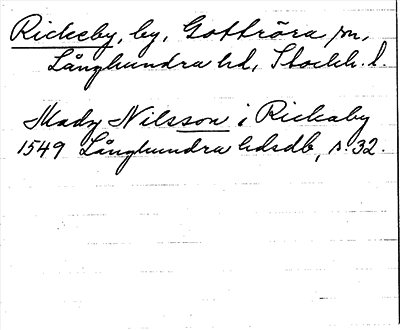 Rickeby, by, Gottröra sn,
Långhundra hd, Stockh. l.
Mads Nilsson i Rickaby
1549 Långhundra hdsdb, s. 32.